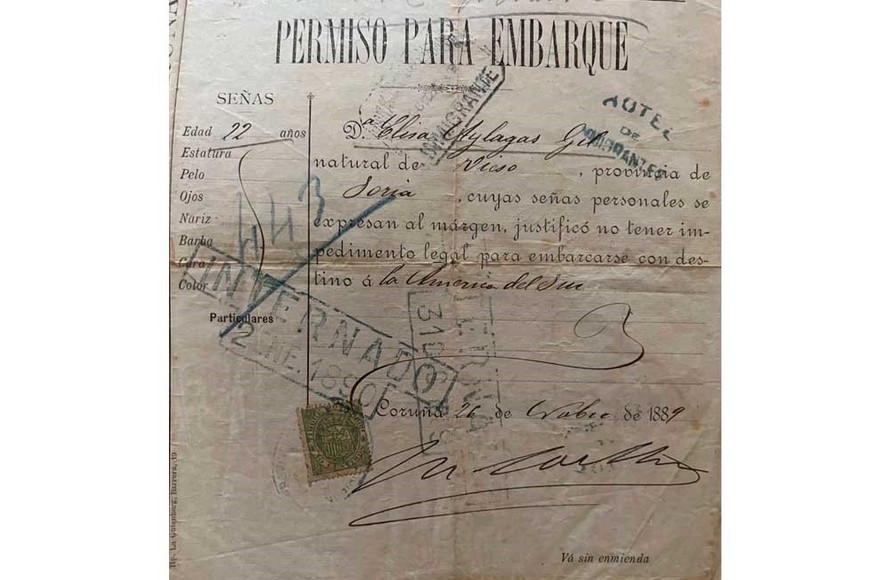 PERMISO PARA EMBARQUE
SEÑAS
Edad 22 años
Estatura
Pelo
Ojos
Nariz
Barba
Cara
Color
Particulares
D.ª Elisa Aylagas Gil
natural de Vieso, provincia de
Soria, cuyas señas personales se
expresan al márgen, justificó no tener im-
pedimento legal para embarcarse con des-
tino á la America del Sur
Coruña 26 de Nobre de 1889
Vá sin enmienda
HOTEL
DE
INMIGRANTES
INMIGRANTE
443
INTERNADO
2 ENE. 1890
31 DIC
Tip. La Gutenberg, Barrera, 19